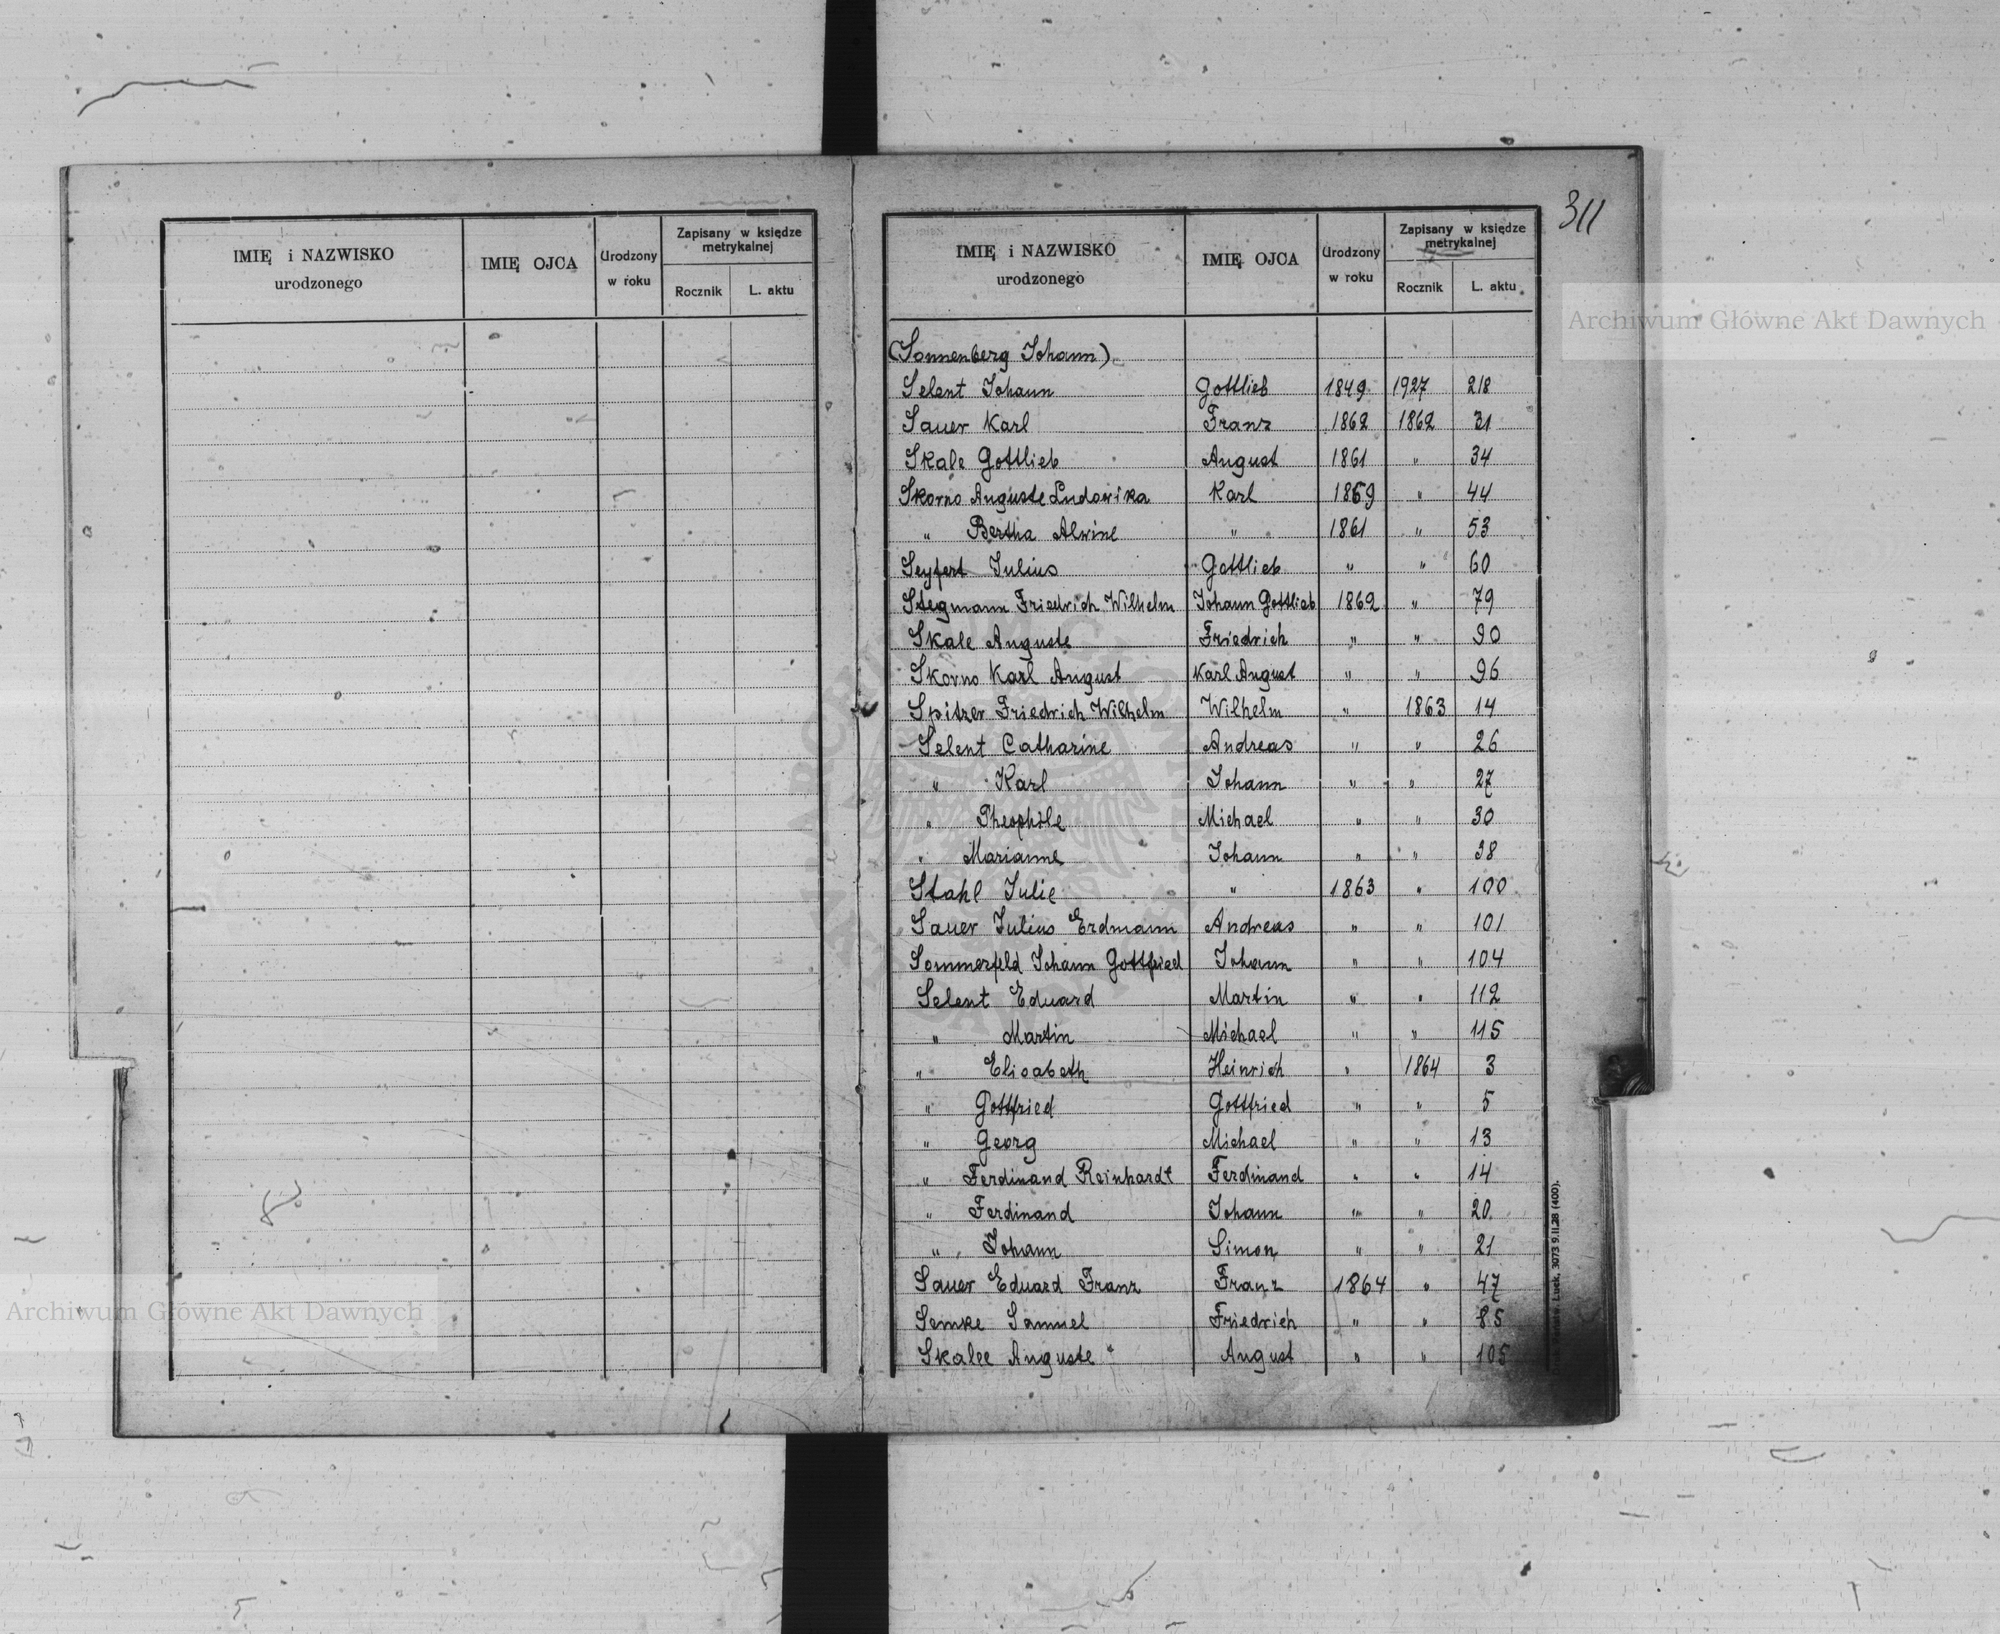 311
IMIĘ i NAZWISKO urodzonego | IMIĘ OJCA | Urodzony w roku | Zapisany w księdze metrykalnej | Rocznik | L. aktu
IMIĘ i NAZWISKO urodzonego | IMIĘ OJCA | Urodzony w roku | Zapisany w księdze metrykalnej | Rocznik | L. aktu
(Sonnenberg Johann)
Selent Johann | Gottlieb | 1849 | 1927 | 218
Sauer Karl | Franz | 1862 | 1862 | 31
Skale Gottlieb | August | 1861 | " | 34
Skorno Auguste Ludowika | Karl | 1859 | " | 44
" Bertha Alwine | " | 1861 | " | 53
Seyfert Julius | Gottlieb | " | " | 60
Stegmann Friedrich Wilhelm | Johann Gottlieb | 1862 | " | 79
Skale Auguste | Friedrich | " | " | 90
Skorno Karl August | Karl August | " | " | 96
Spitzer Friedrich Wilhelm | Wilhelm | " | 1863 | 14
Selent Catharine | Andreas | " | " | 26
" Karl | Johann | " | " | 27
" Theophile | Michael | " | " | 30
" Marianne | Johann | " | " | 38
Stahl Julie | " | 1863 | " | 100
Sauer Julius Erdmann | Andreas | " | " | 101
Sommerfeld Johann Gottfried | Johann | " | " | 104
Selent Eduard | Martin | " | " | 112
" Martin | Michael | " | " | 115
" Elisabeth | Heinrich | " | 1864 | 3
" Gottfried | Gottfried | " | " | 5
" Georg | Michael | " | " | 13
" Ferdinand Reinhardt | Ferdinand | " | " | 14
" Ferdinand | Johann | " | " | 20
" Johann | Simon | " | " | 21
Sauer Eduard Franz | Franz | 1864 | " | 47
Semke Samuel | Friedrich | " | " | 85
Skalee Auguste | August | " | " | 105
Łuck, 3073 9.II.28 (400).
Archiwum Główne Akt Dawnych
Archiwum Główne Akt Dawnych